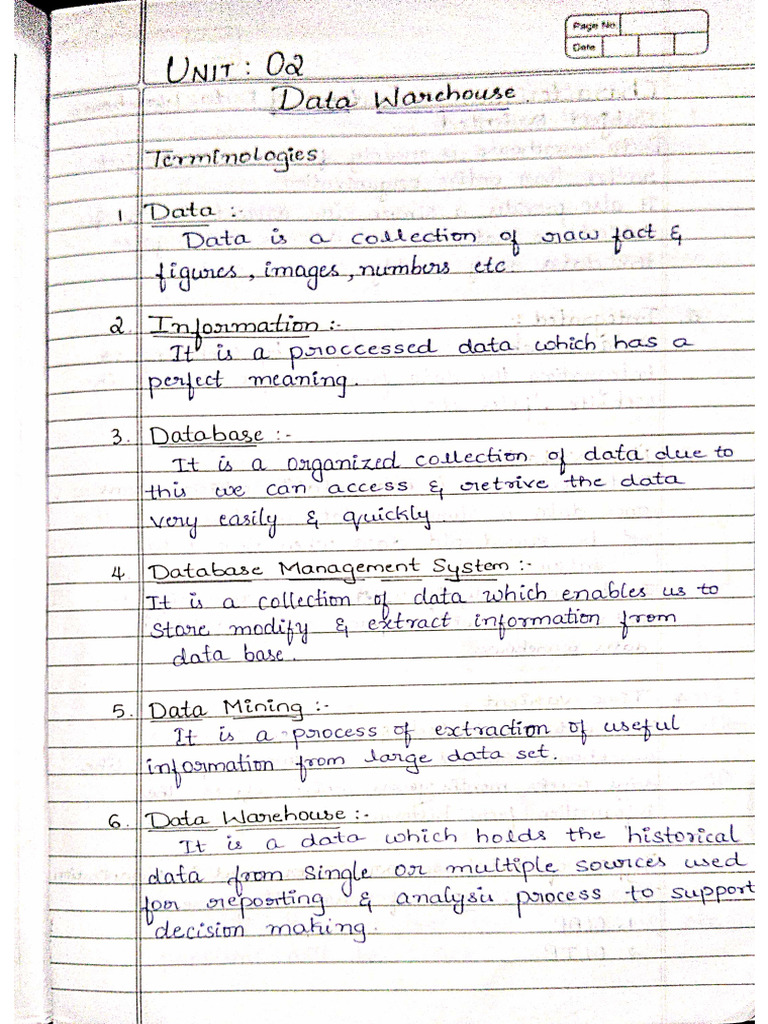 Page No
Date
UNIT : 02
Data Warehouse.
Terminologies
1. Data :
Data is a collection of raw fact &
figures, images, numbers etc
2. Information :-
It is a proccessed data which has a
perfect meaning.
3. Database :-
It is a organized collection of data due to
this we can access & retrive the data
very easily & quickly.
4 Database Management System :-
It is a collection of data which enables us to
store modify & extract information from
data base.
5. Data Mining :-
It is a process of extraction of useful
information from large data set.
6. Data Warehouse :-
It is a data which holds the historical
data from single or multiple sources used
for reporting & analysis process to support
decision making.